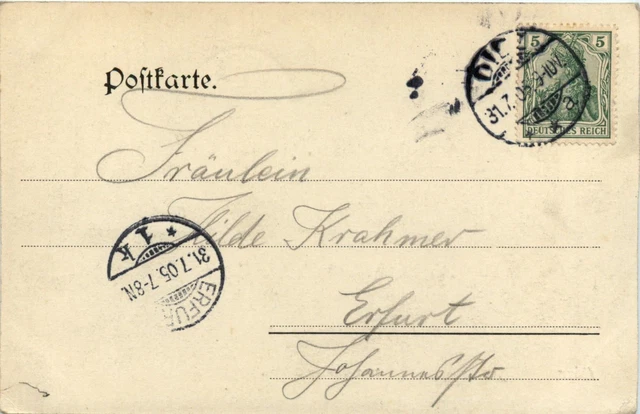 5 5
DEUTSCHES REICH
31.7.05.9-10V.
a
Postkarte.
Fräulein
Hilde Krahmer
Erfurt
Johannesstr.
1 k
31.7.05.7-8N.
ERFURT